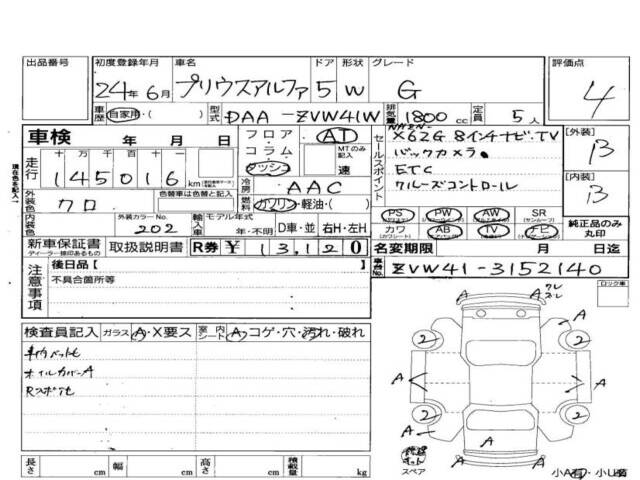 出品番号
初度登録年月
24年6月
車名
プリウスアルファ
ドア
5
形状
W
グレード
G
評価点
4
車歴
自家用・(
)
型式
DAA-ZVW41W
排気量
1800 cc
定員
5人
車検 年 月 日
フロア・コラム・ダッシュ
AT
MTのみ記入
速
走行
十万 万 千 百 十 一
145016 km
冷房
AAC
外装色
クロ
色替車は色替と記入
燃料
ガソリン・軽油・( )
内装色
外装カラーNo.
202
輸入車
モデル年式
年・不明
D車・並
右H・左H
新車保証書
ディーラー様印あるもの
取扱説明書
R券
¥13,120
セールスポイント
X62G 8インチナビ.TV
バックカメラ.
ETC
クルーズコントロール
PS
PW
AW
SR
(サンルーフ)
カワ
(カワシート)
AB
TV
ナビ
純正品のみ丸印
[外装]
B
[内装]
B
現在色を記入
名変期限 月 日迄
車台No.
ZVW41-3152140
注意事項
後日品[
]
不具合箇所等
ロック車
検査員記入
ガラス
A・X要ス
室内
シート
A・コゲ・穴・汚れ・破れ
オイルカバーA
2
2
2
2
A
A
A
A
A
A
A
スペア
小A有・小U有
長さ cm
幅 cm
高さ cm
積載量 kg